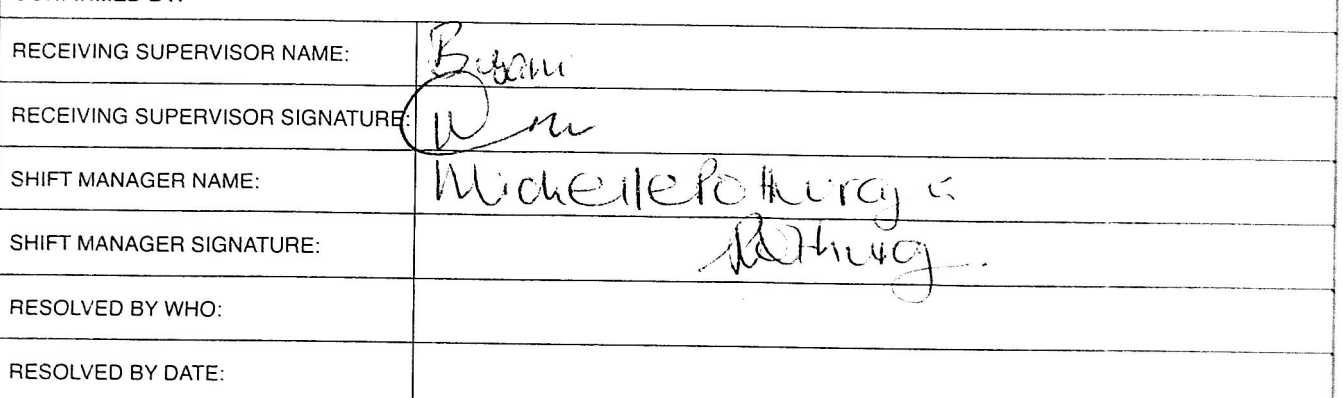 RECEIVING SUPERVISOR NAME: Busani
RECEIVING SUPERVISOR SIGNATURE:
SHIFT MANAGER NAME: Michelle
SHIFT MANAGER SIGNATURE:
RESOLVED BY WHO:
RESOLVED BY DATE: